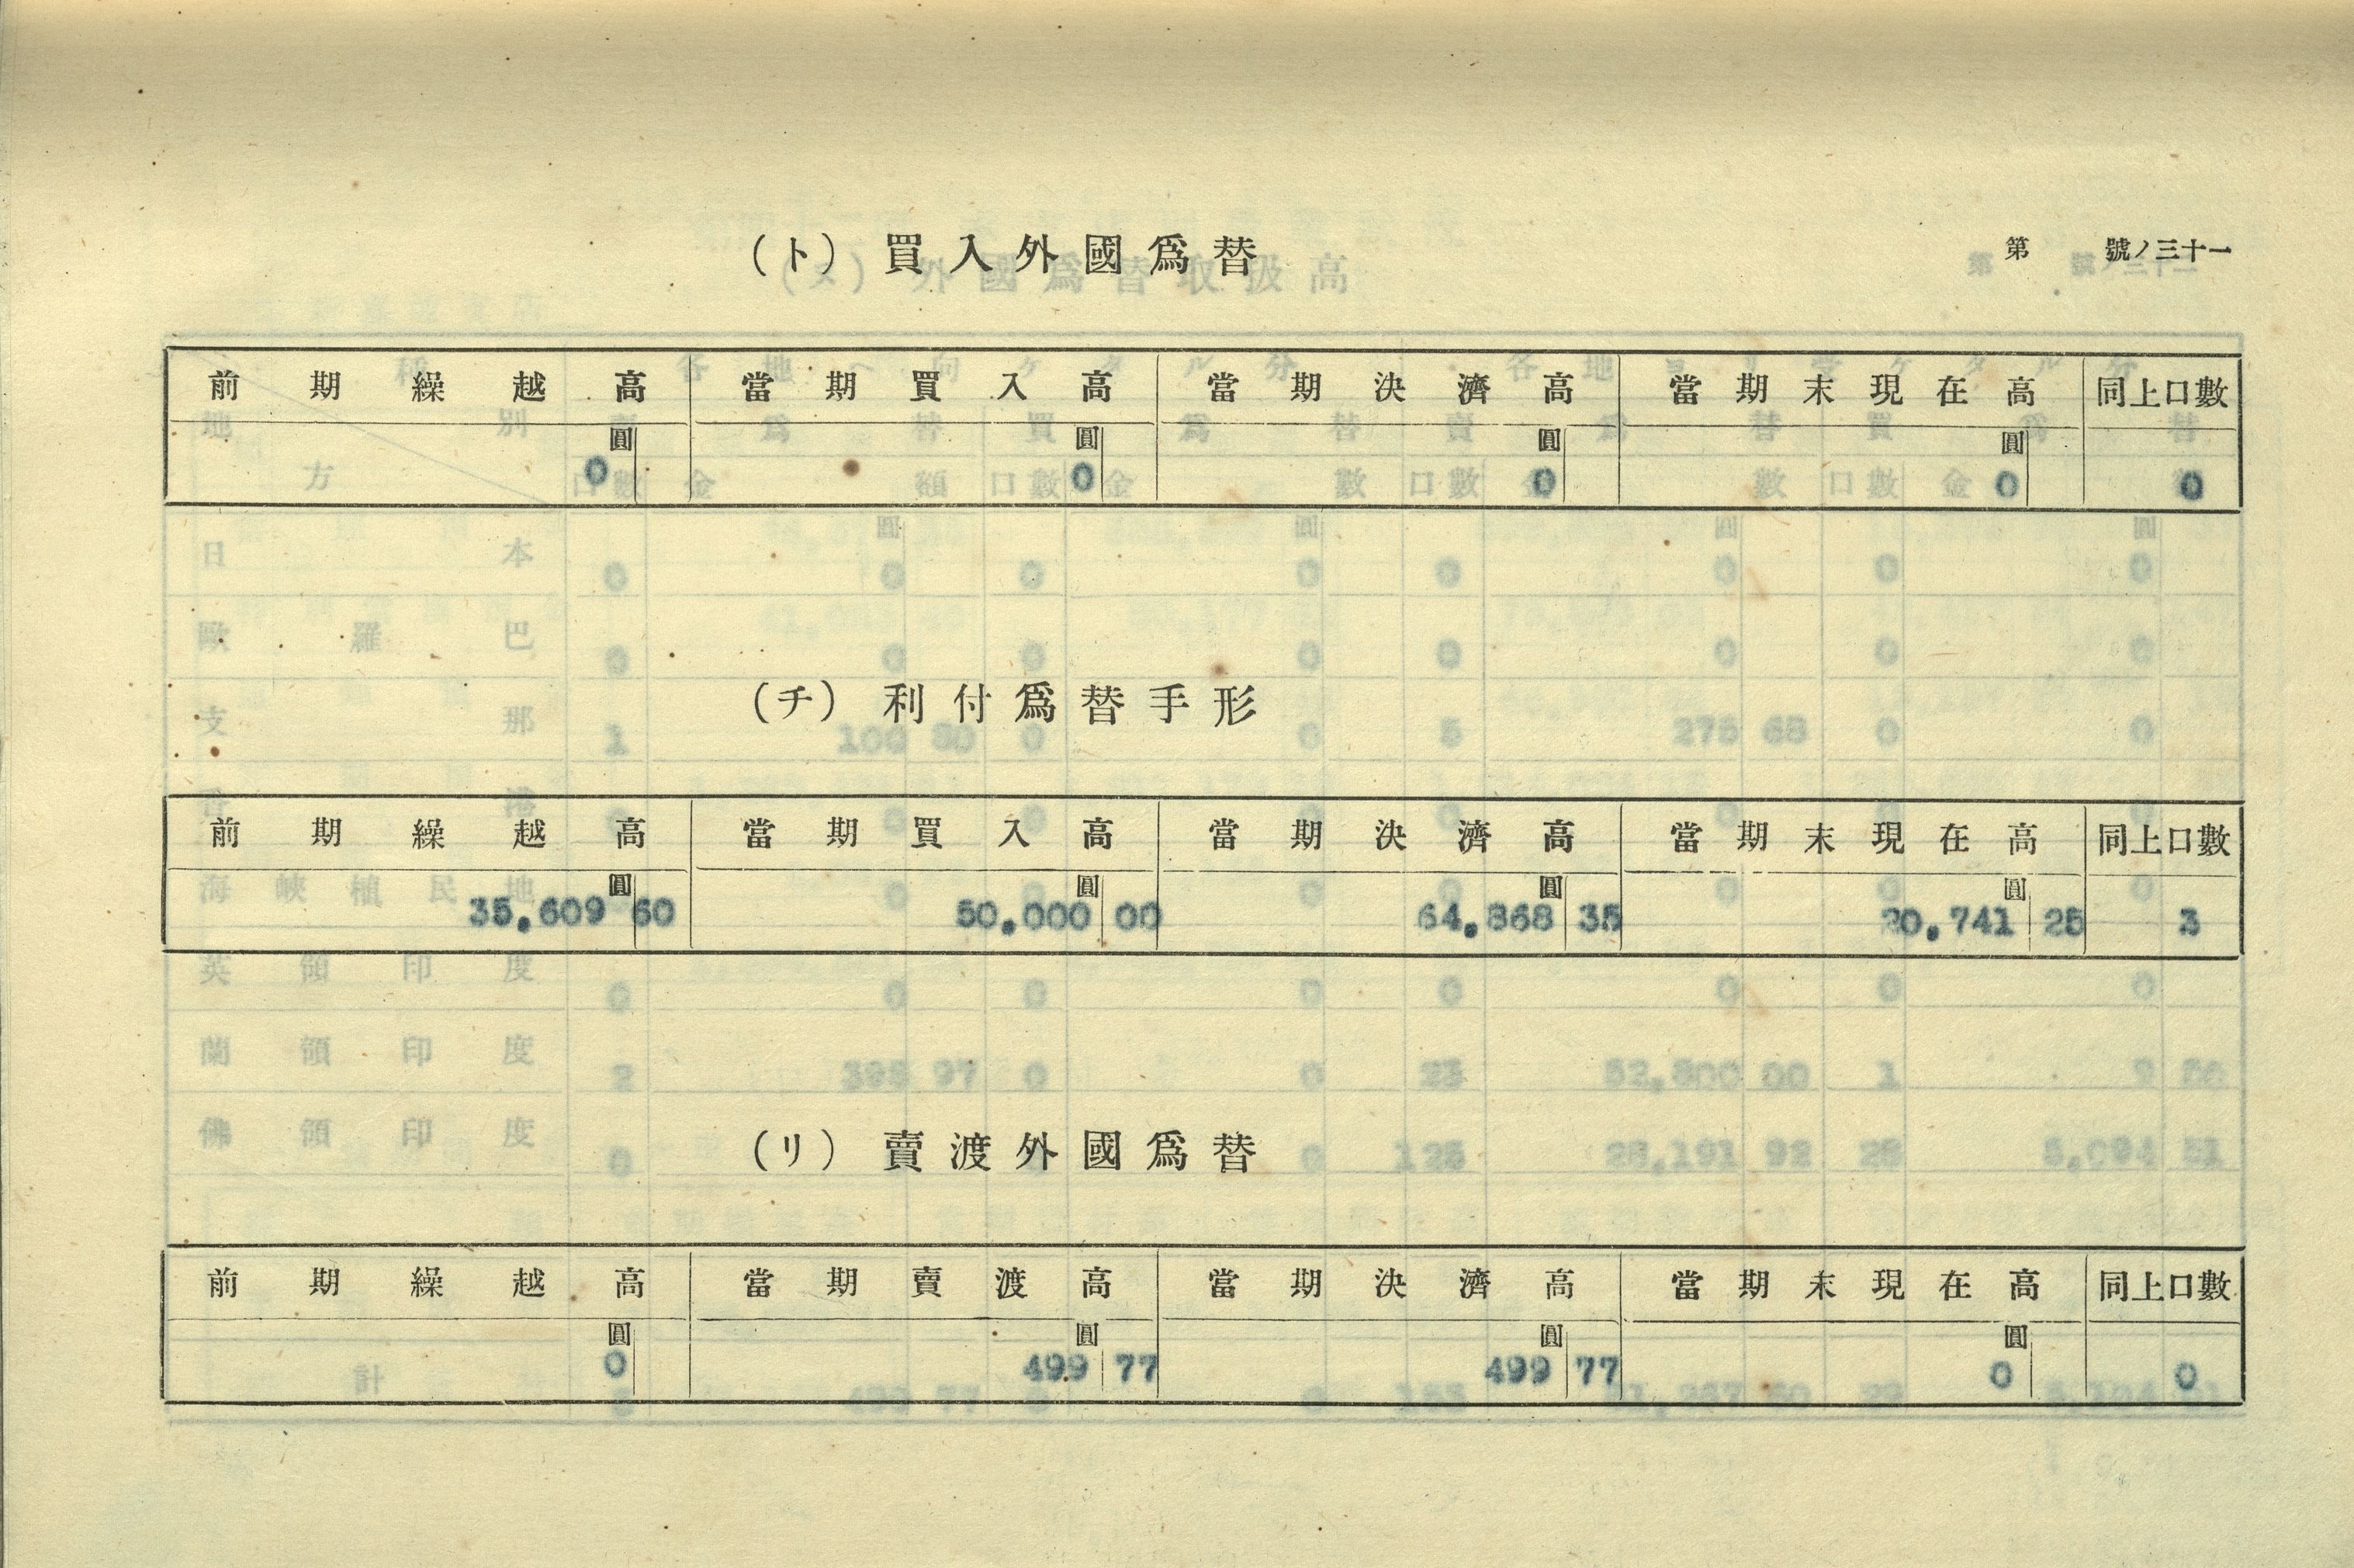 第　號ノ三十一
(ト) 買入外國爲替
前期繰越高 當期買入高 當期決濟高 當期末現在高 同上口數
圓 圓 圓 圓
0 0 0 0 0
(チ) 利付爲替手形
前期繰越高 當期買入高 當期決濟高 當期末現在高 同上口數
圓 圓 圓 圓
35,609 60 50,000 00 64,868 35 20,741 25 3
(リ) 賣渡外國爲替
前期繰越高 當期賣渡高 當期決濟高 當期末現在高 同上口數
圓 圓 圓 圓
0 499 77 499 77 0 0